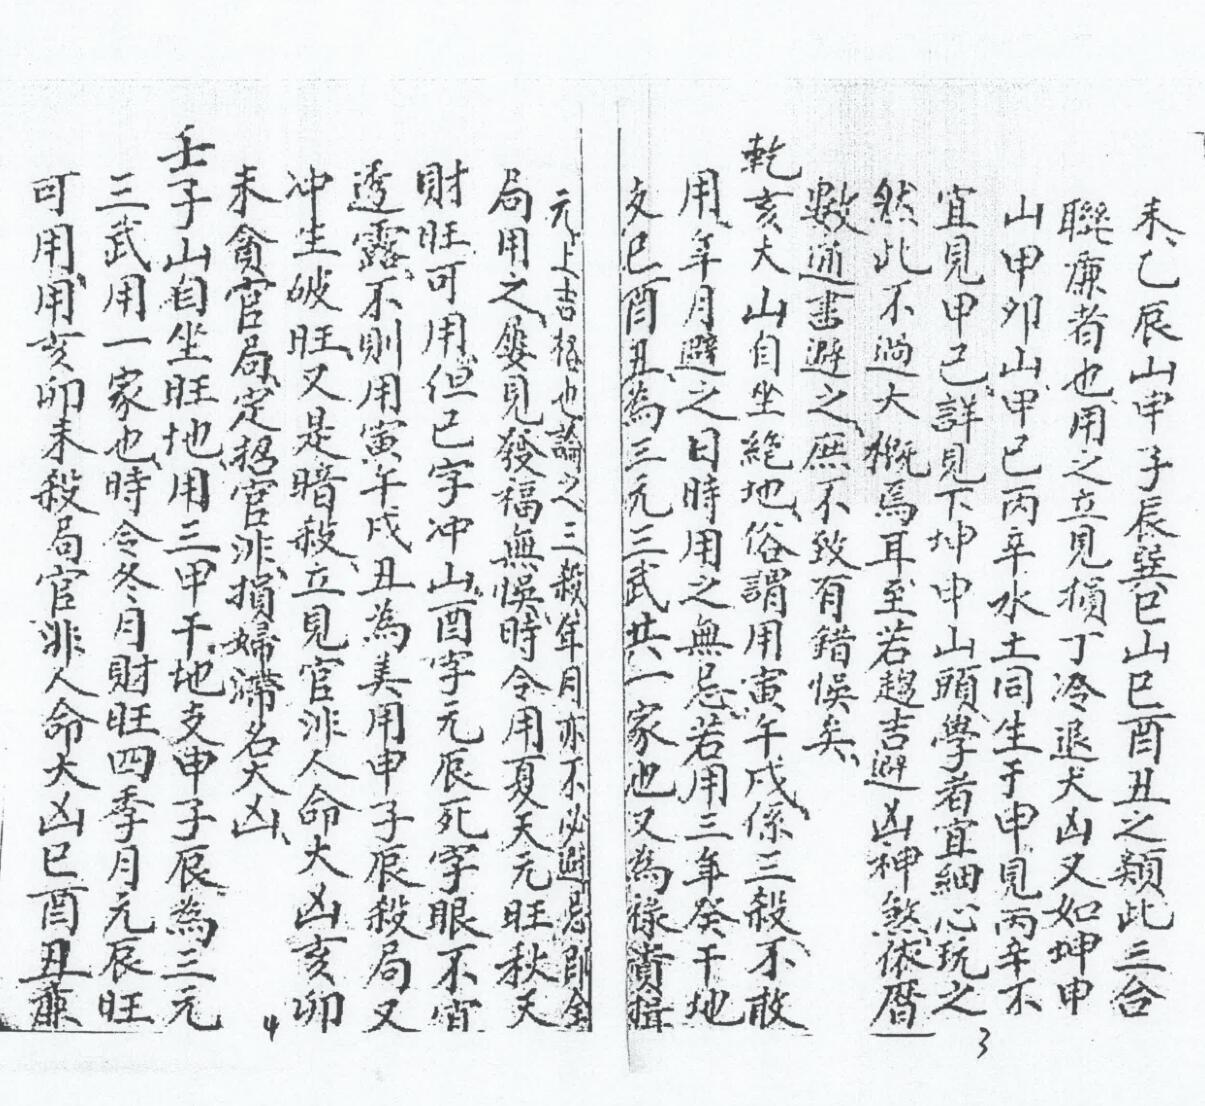 未乙辰山申子辰巽巳山巳酉丑之類此三合
聯廉者也用之立見損丁冷退大凶又如坤申
山甲卯山甲己丙辛水土同生于申見丙辛不
宜見甲己詳見下坤申山頭學者宜細心玩之
然此不過大概焉耳至若趨吉避凶神煞依曆
數通書避之庶不致有錯悞矣
乾亥大山自坐絶地俗謂用寅午戌係三殺不敢
用年月避之日時用之無忌若用三年癸干地
支巳酉丑為三元三武共一家也又為祿貴
3
元上吉格也論之三殺年月亦不必避忌即全
局用之屢見發福無悞時令用夏天元旺秋天
財旺可用但巳字冲山酉字元辰死字眼不宜
透露不則用寅午戌丑為美用申子辰殺局又
冲生破旺又是暗殺立見官非人命大凶亥卯
未貪官局定招官非損婦滯名大凶
壬子山自坐旺地用三甲干地支申子辰為三元
三武用一家也時令冬月財旺四季月元辰旺
可用用亥卯未殺局官非人命大凶巳酉丑廉
4